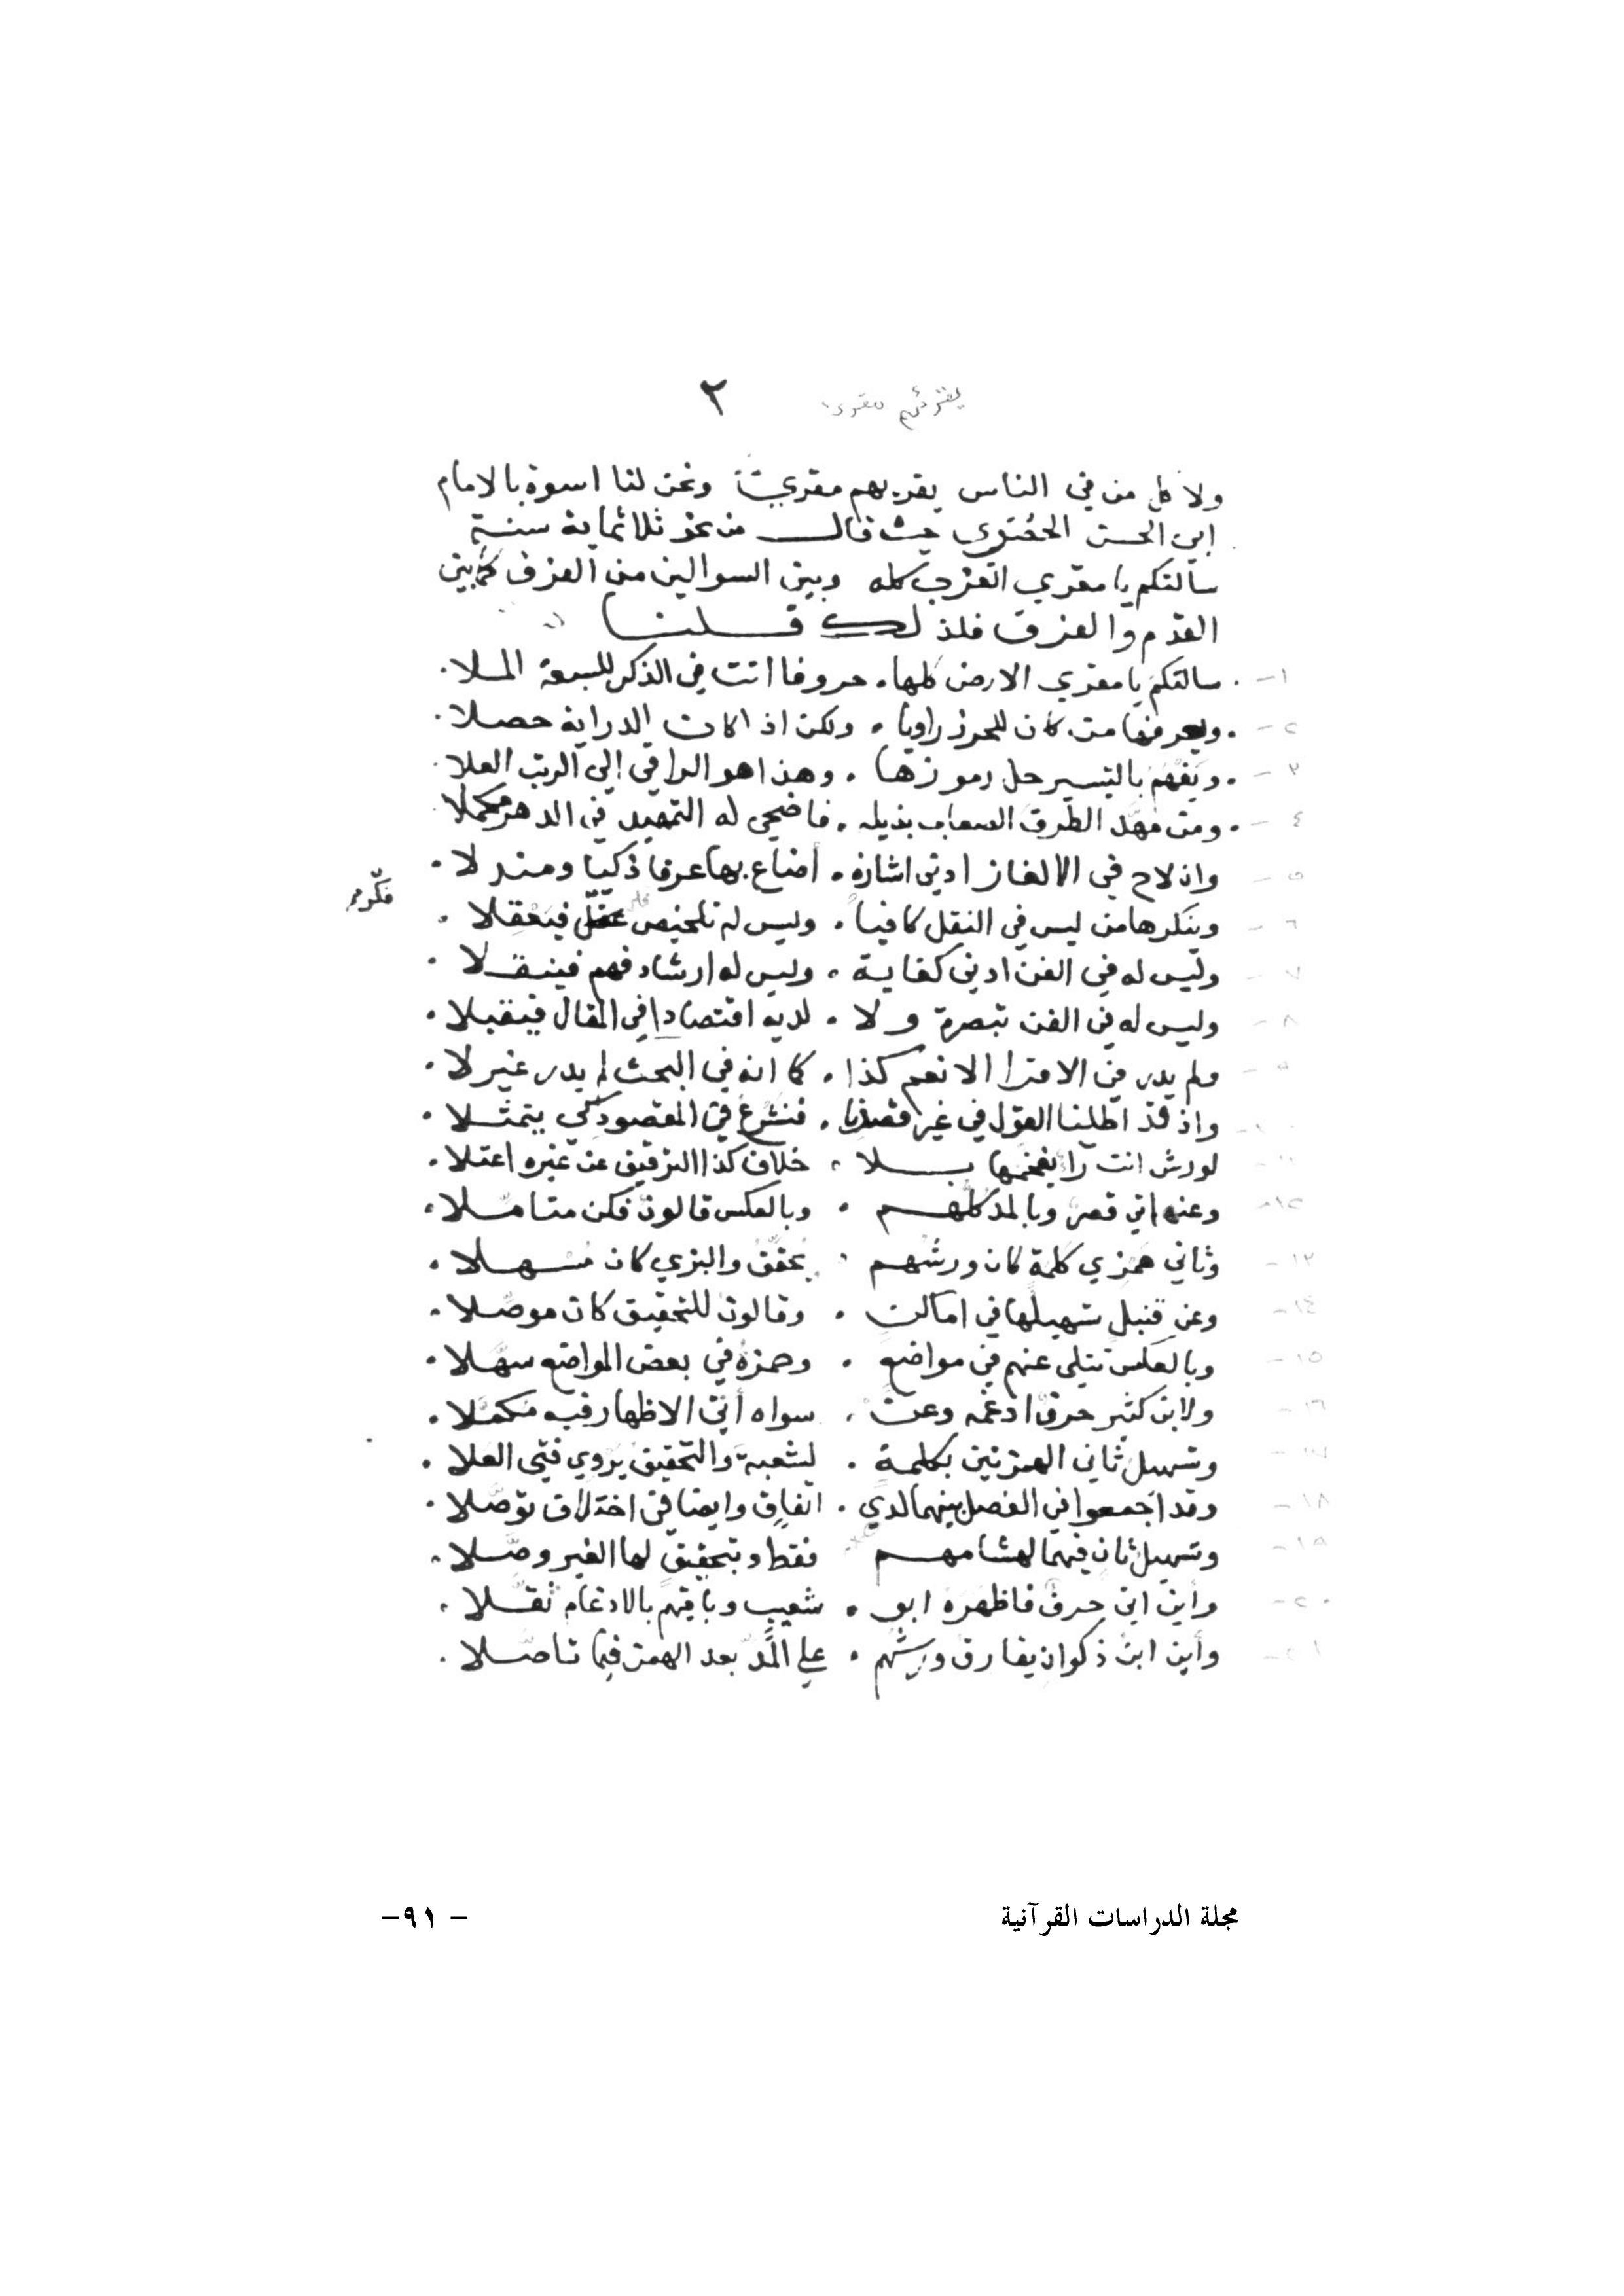 يقرئهم مقرئا ٢
ولا كل من في الناس يقريهم مقرياً ونحن لنا اسوة بالامام
ابي الحسن الحُصَري حيث قال من نحو ثلاثماية سنة
سالتكم يا مقري الغرب كله وبين السوالين من الفرق كما بين
القدم والفرق فلذلك قلنا
١- سالتكم يا مقري الارض كلها . حروفا اتت في الذكر للسبعة الملا .
٢- ويعرفها من كان للحرز راويا . ولكن اذا كان الدراية حصلا .
٣- ويفهم بالتيسير حل رموزها . وهذا هو الراقي إلي الرتب العلا .
٤- ومن مهّد الطرق الصعاب بذيله . فاضحي له التمهيد في الدهر مكملا .
٥- وان لاح في الالغاز ادني اشارة . أضاع بها عرفا ذكيا ومندلا .
٦- وينكرها من ليس في النقل كافيا . وليس له تلخيص فيعقلا .
٧- وليس له في الفن ادني كفاية . وليس له ارشاد فهم فينقلا .
٨- وليس له في الفن تبصرة ولا . لديه اقتصادا في المقال فيقبلا .
٩- ولم يدر في الاقرا الا نعم كذا . كما انه في البحث لم يدر غير لا .
١٠- واذ قد اطلنا القول في غير قصدنا . فنشرع في المقصود كي يتمثلا .
١١- لورش اتت را يفخمها بلا . خلاف كذا الترقيق عن غيره اعتلا .
١٢- وعنه اتي قصر وبالمد كلهم . وبالعكس قالون فكن متاملا .
١٣- وثاني همزي كلمة كان ورشهم . يحقق والبزي كان مسهلا .
١٤- وعن قنبل تسهيلها في اماكن . وقالون للتحقيق كان موصلا .
١٥- وبالعكس تتلي عنهم في مواضع . وحمزة في بعض المواضع سهلا .
١٦- ولابن كثير حرف ادغمه وعن . سواه أتي الاظهار فيه مكملا .
١٧- وتسهيل ثاني الهمزتين بكلمة . لشعبة والتحقيق يروي فتي العلا .
١٨- وقد اجمعوا في الفصل بينهما لدي . اتفاق وايضا في اختلاف توصّلا .
١٩- وتسهيل ثان فيهما لهشامهم فقط وبتحقيق لها الغير وصّلا .
٢٠- وأين اتي حرف فاظهره ابو . شعيب وباقيهم بالادغام ثقّلا .
٢١- وأين ابن ذكوان يفارق ورشهم . علي المد بعد الهمز فيما تاصّلا .
مجلة الدراسات القرآنية
- ٩١-